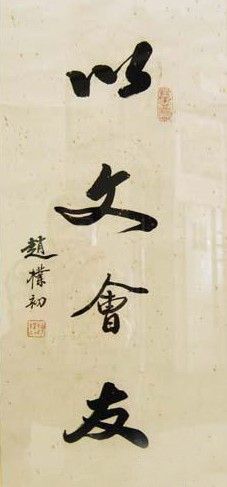 以文會友
趙樸初